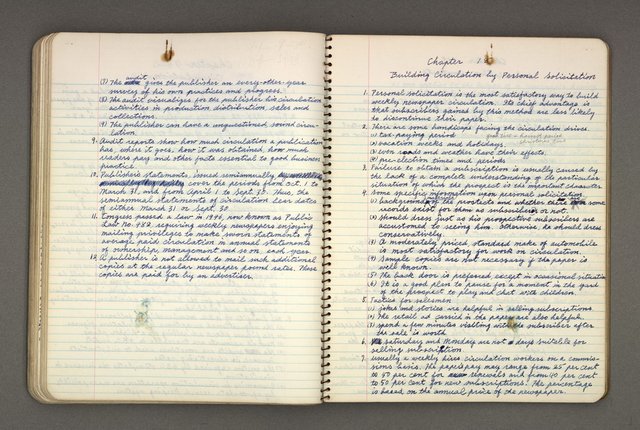 audit
(7) The give the publisher an every-other-year
survey of his own practices and progress.
(8) The audit visualizes for the publisher his circulation
activities in production, distribution, sales and
collections.
(9) The publisher can have a unquestioned sound circu-
lation.
9. Audit reports show how much circulation a publication
has, where it goes, how it was obtained, how much
readers pay and other facts essential to good business
practice.
10. Publisher's statements, issued semiannually
cover the periods from Oct. 1 to
March 31, and from April 1 to Sept. 30. Thus, the
semiannual statements of circulation bear dates
of either March 31 or Sept. 30.
11. Congress passed a law in 1946, now known as Public
Law No. 482, requiring weekly newspapers enjoying
mailing privileges to make sworn statements of
average paid circulation in annual statements
of ownership, management and so on, each year.
12. A publisher is not allowed to mail such additional
copies at the regular newspaper pound rates. These
copies are paid for by an advertiser.
Chapter 12
Building Circulation by Personal Solicitation
1. Personal solicitation is the most satisfactory way to build
weekly newspaper circulation. Its chief advantage is
that subscribers gained by this method are less likely
to discontinue their papers.
2. There are some handicaps facing the circulation drives.
(1) tax-paying period
(2) vacation weeks and holidays
(3) even and weather have their effects.
(4) pre-election times and periods
3. Failure to obtain a subscription is usually caused by
the lack of a complete understanding of the particular
situation of which the prospect is the important character.
4. Some specific information upon personal solicitation
(1) background of the prospects and whether there some
records exist for them as subscribers or not.
(2) should dress just as his prospective subscribers are
accustomed to seeing him. Otherwise, he should dress
conservatively.
(3) A moderately priced standard make of automobile
is most satisfactory for work on circulation.
(4) Sample copies are not necessary if the paper is
well known.
(5) The back door is preferred except in occasional situation
(6) It is a good plan to pause for a moment in the yard
of the prospect to play and chat with children.
5. Tactics for salesmen
(1) jokes and stories are helpful in selling subscriptions.
(2) The retail ad carried in the paper are also helpful.
(3) spend a few minutes visiting with the subscriber after
the sale is worth.
6. Saturday and Monday are not days suitable for
selling subscription
7. Usually a weekly hires circulation workers on a commis-
sions basis. The papers pay may range from 25 per cent
to 50 per cent for renewals and from 40 per cent
to 50 per cent for new subscriptions. The percentage
is based on the annual price of the newspaper.